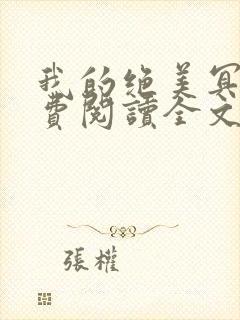 我的绝美冥
費閱讀全文
張權